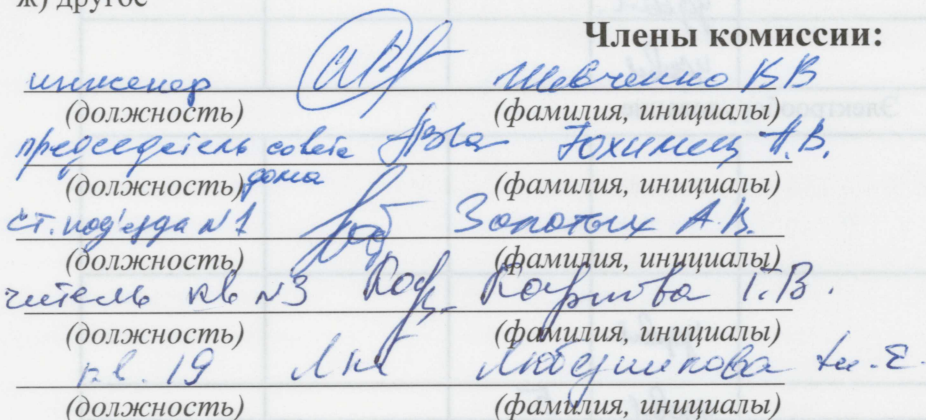 ж) другое
Члены комиссии:
инженер Шевченко В В
(должность) (фамилия, инициалы)
председатель совета Юхимец А.В.
(должность) дома (фамилия, инициалы)
ст. подъезда №1 Золотых А.В.
(должность) (фамилия, инициалы)
житель кв №3 Г.В.
(должность) (фамилия, инициалы)
кв. 19
(должность) (фамилия, инициалы)